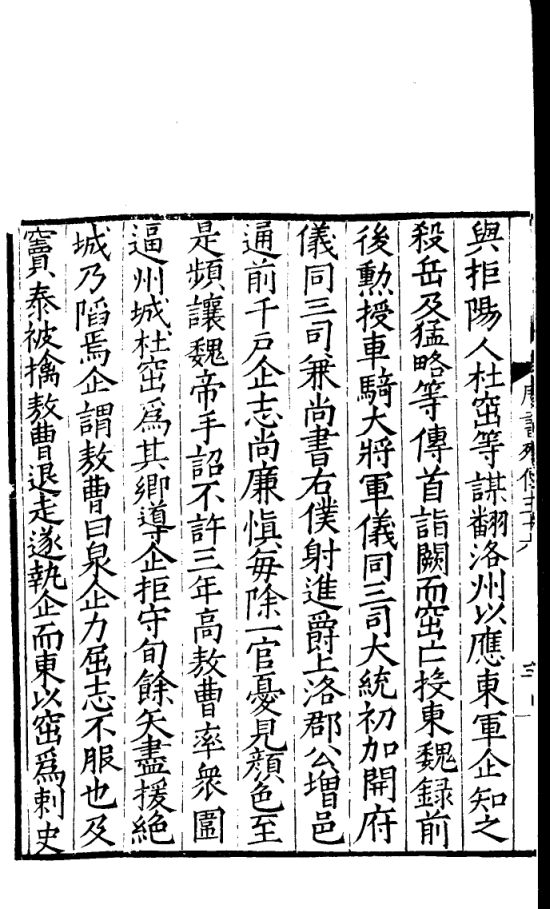 與拒陽人杜窋等謀翻洛州以應東軍企知之
殺岳及猛略等傳首詣闕而窋亡投東魏録前
後勲授車騎大將軍儀同三司大統初加開府
儀同三司兼尚書右僕射進爵上洛郡公增邑
通前千戸企志尚廉愼每除一官憂見顔色至
是頻讓魏帝手詔不許三年高敖曹率衆圍
逼州城杜窋爲其鄉導企拒守旬餘矢盡援絶
城乃陷焉企謂敖曹曰泉企力屈志不服也及
竇泰被擒敖曹退走遂執企而東以窋爲刺史